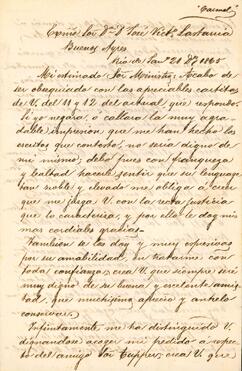 "Carmel"
Exmo Sor Dn D. José Victo Lastarria
Buenos Ayres
Rio de Jano 20 1865
Mi estimado Sor Ministro: Acabo de
ser obsequiado con las apreciables cartitas
de V. del 11 y 12 del actual, que respondo.
Si yo negára, ó callára la muy agra-
dable impresion que me han hecho los
escritos que contesto, no seria digno de
mi mismo; debo pues con franqueza
y lealtad hacerle sentir que su lenguage
tan noble y elevado me obliga á creer
que me juzga V. con la recta justicia
que lo caracteriza, y por ella le doy mis
mas cordiales gracias.
Tambien se las doy y muy espresivas
por su amabilidad, en tratarme con
toda confianza; crea V. que siempre seré
muy digno de su buena y escelente amis-
tad, que muchisimo aprecio y anhelo
conservar.
Infinitamente me ha distinguido V.
dignandose acoger mi pedido á respec-
to del amigo Sor Cupper; crea V. que